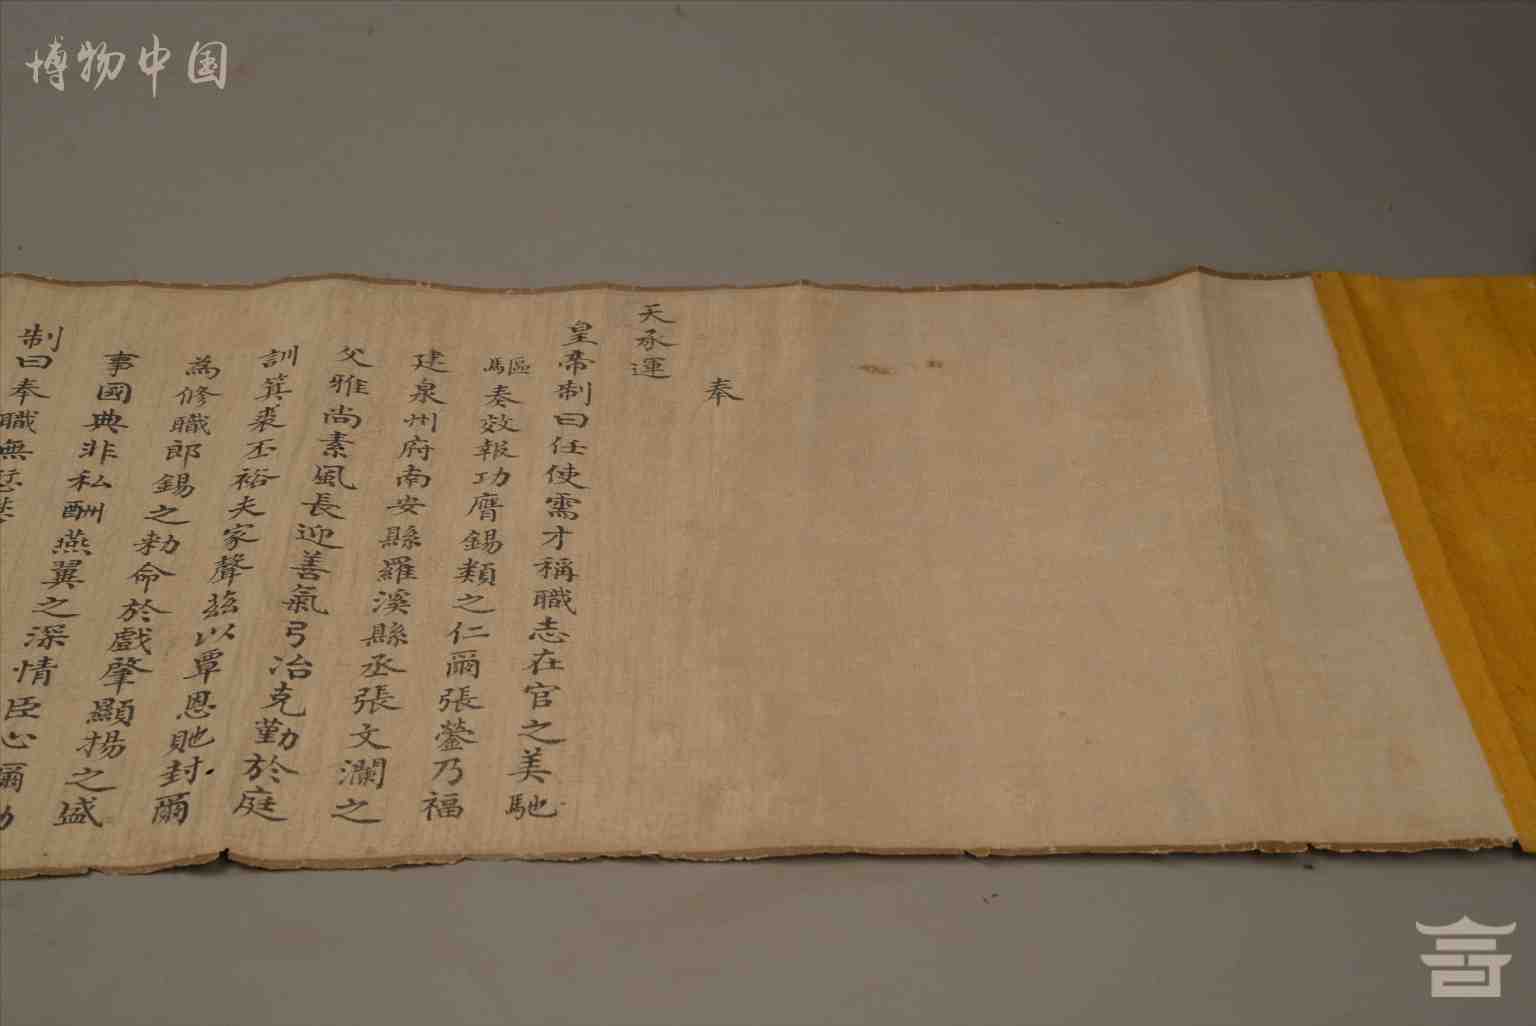 博物中国
奉
天承運
皇帝制曰任使需才稱職志在官之美馳
驅奏效報功膺錫類之仁爾張蓥乃福
建泉州府南安縣羅溪縣丞張文瀾之
父雅尚素風長迎善氣弓冶克勤於庭
訓箕裘丕裕夫家聲茲以覃恩貤封爾
為修職郎錫之勅命於戲肇顯揚之盛
事國典非私酬燕翼之深情臣心爾
制曰奉職無